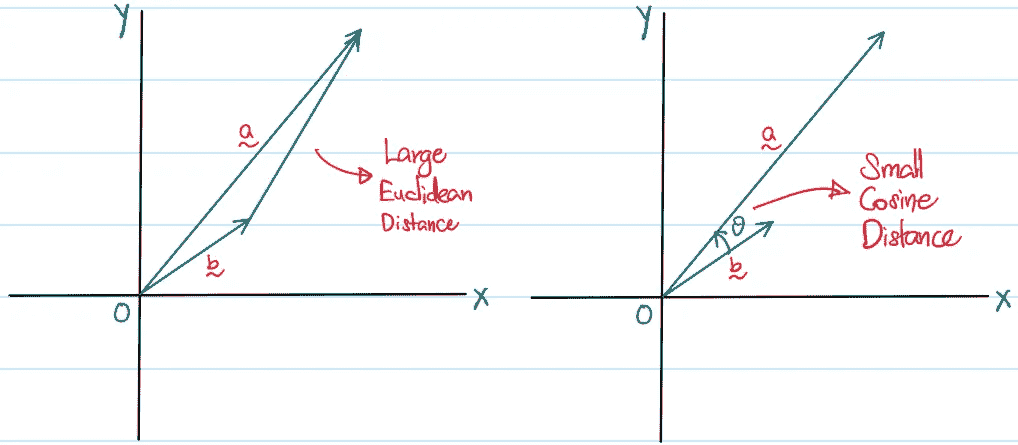 Y
a
Large
Euclidean
Distance
b
O
X
Y
a
Small
Cosine
Distance
θ
b
O
X